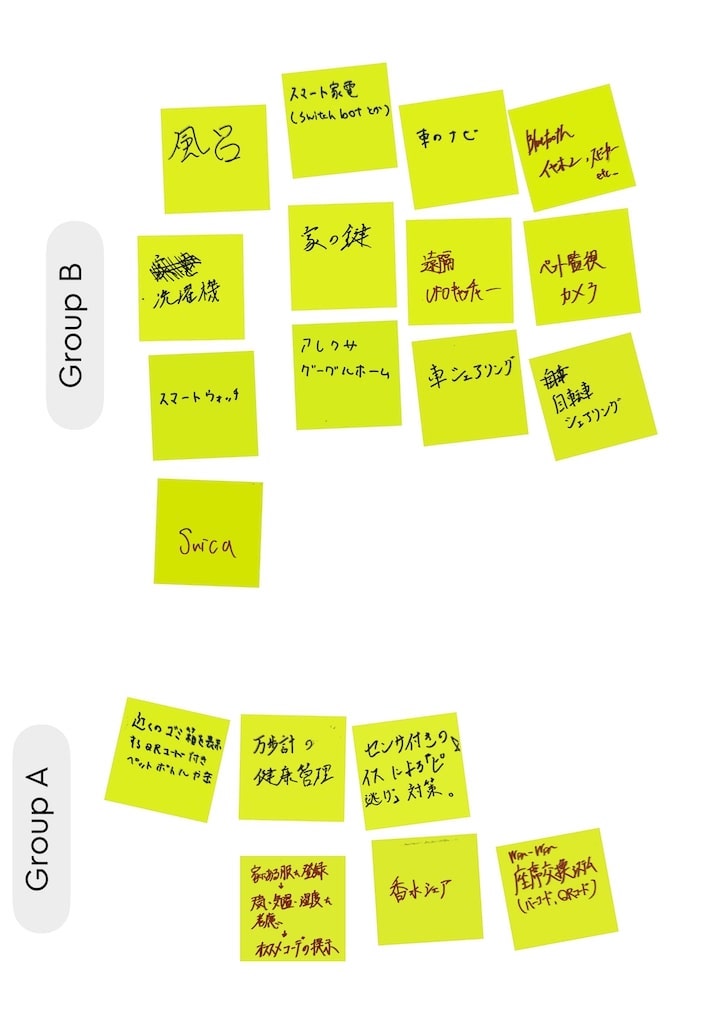 Group B
風呂
スマート家電
(switch botとか)
車のナビ
Bluetooth
イヤホン、スピーカー
etc…
洗濯機
家の鍵
遠隔
UFOキャッチャー
ペット監視
カメラ
スマートウォッチ
アレクサ
グーグルホーム
車シェアリング
自転車
シェアリング
Suica
Group A
近くのゴミ箱を表示
するQRコード付き
ペットボトルや缶
万歩計の
健康管理
センサ付きの
イスによる「ピ
逃げ」対策。
家にある服を登録
↓
天気・気温・湿度を
考慮
↓
オススメコーデの提示
香水シェア
Win-Win
座席交換システム
(バーコード、QRコード)